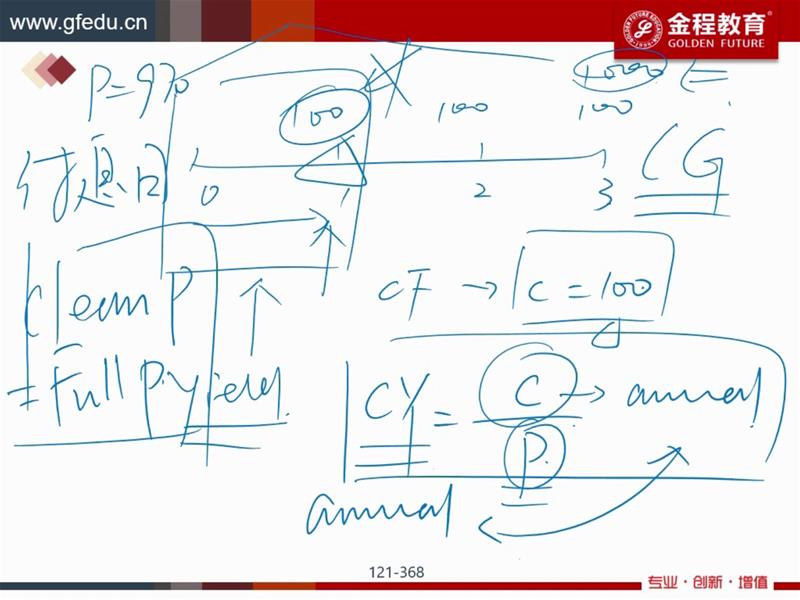 www.gfedu.cn
金程教育
GOLDEN FUTURE
P=970
100 100 1000
100
付息日 0 1 2 3
CG
Clean P
= Full P. yield.
CF → C = 100
CY = C / P. → annual
annual
121-368
专业·创新·增值